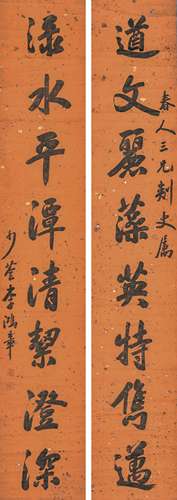 道文麗藻英特儁邁
春人三兄刺史屬
淥水平潭清絜澄深
少荃李鴻章